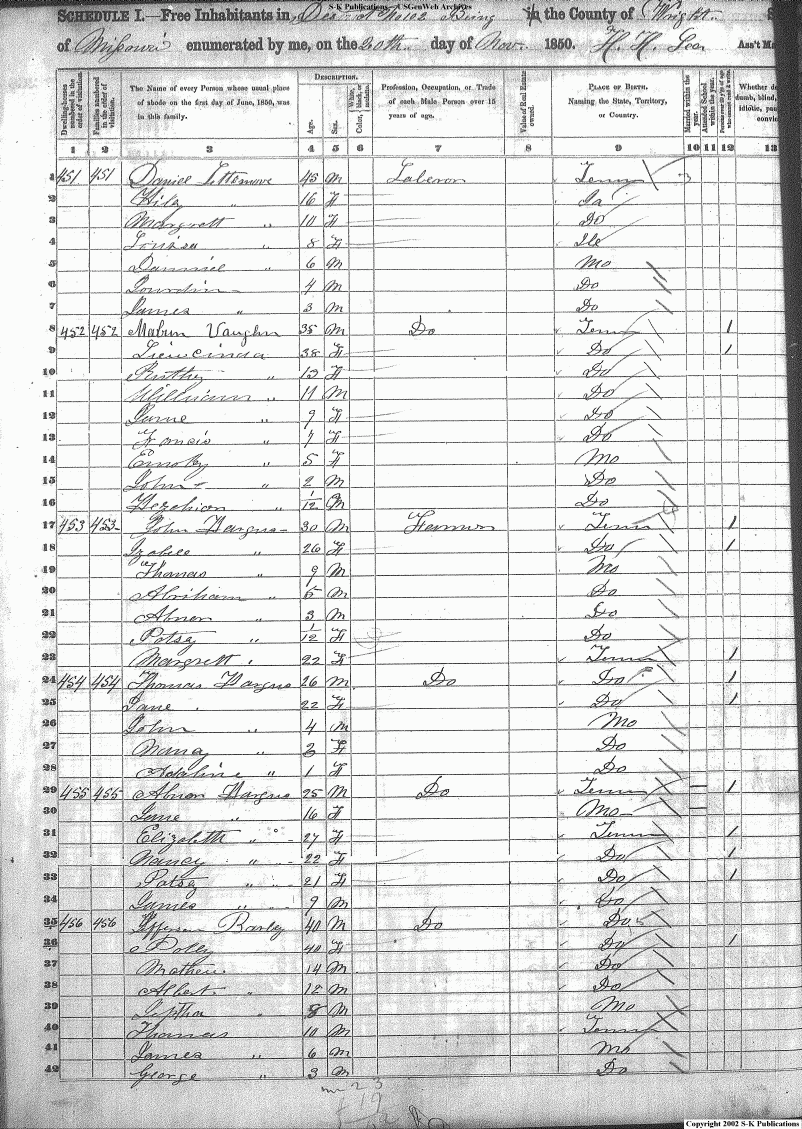 S-K Publications - USGenWeb Archives
SCHEDULE I.—Free Inhabitants in Dea A No 102 Being in the County of Wright
of Missouri enumerated by me, on the 20th day of Nov. 1850. H. H. Lea Ass't Ma
Dwelling-houses numbered in the order of visitation.
Families numbered in the order of visitation.
The Name of every Person whose usual place of abode on the first day of June, 1850, was in this family.
DESCRIPTION.
Age.
Sex.
Color, White, black, or mulatto.
Profession, Occupation, or Trade of each Male Person over 15 years of age.
Value of Real Estate owned.
PLACE OF BIRTH. Naming the State, Territory, or Country.
Married within the year.
Attended School within the year.
Persons over 20 y'rs of age who cannot read & write.
Whether de
dumb, blind,
idiotic, pau
convic
1 2 3 4 5 6 7 8 9 10 11 12 13
1 451 451 Daniel 45 M Laberor Tenn
2 " 16 F
3 Margrett " 10 F Do
4 Louisa " 8 F Ile
5 Danniel " 6 M Mo
6 4 M Do
7 James " 3 M Do
8 452 452 Vaughn 35 M Do Tenn 1
9 38 F Do 1
10 Ruthy " 12 F Do
11 William " 11 M Do
12 Jane " 9 F Do
13 Francis " 7 F Do
14 " 5 F Mo
15 John " 2 M Do
16 " 1/12 M Do
17 453 453 John Hargus 30 M Farmer Tenn 1
18 " 26 F Do 1
19 Thomas " 9 M Mo
20 Abriham " 5 M Do
21 Abner " 3 M Do
22 Patsy " 1/12 F Do
23 Margrett " 22 F Tenn 1
24 454 454 Thomas Hargus 26 M Do Do 1
25 Jane 22 F Do 1
26 John " 4 M Mo
27 " F Do
28 Adaline " 1 F Do
29 455 455 Abner Hargus 25 M Do Tenn 1
30 Jane " 16 F Mo
31 Elizabeth " 27 F Tenn 1
32 Nancy " 22 F Do 1
33 Patsy " 21 F Do 1
34 James " 9 M Do
35 456 456 Jefferson 40 M Do Do
36 Polly 40 F Do 1
37 Mathew 14 M Do
38 Albert " 12 M Do
39 Jeptha " 8 M Mo
40 Thomas 10 M Tenn
41 James " 6 M Mo
42 George " 3 M Do
23
19
Copyright 2002 S-K Publications